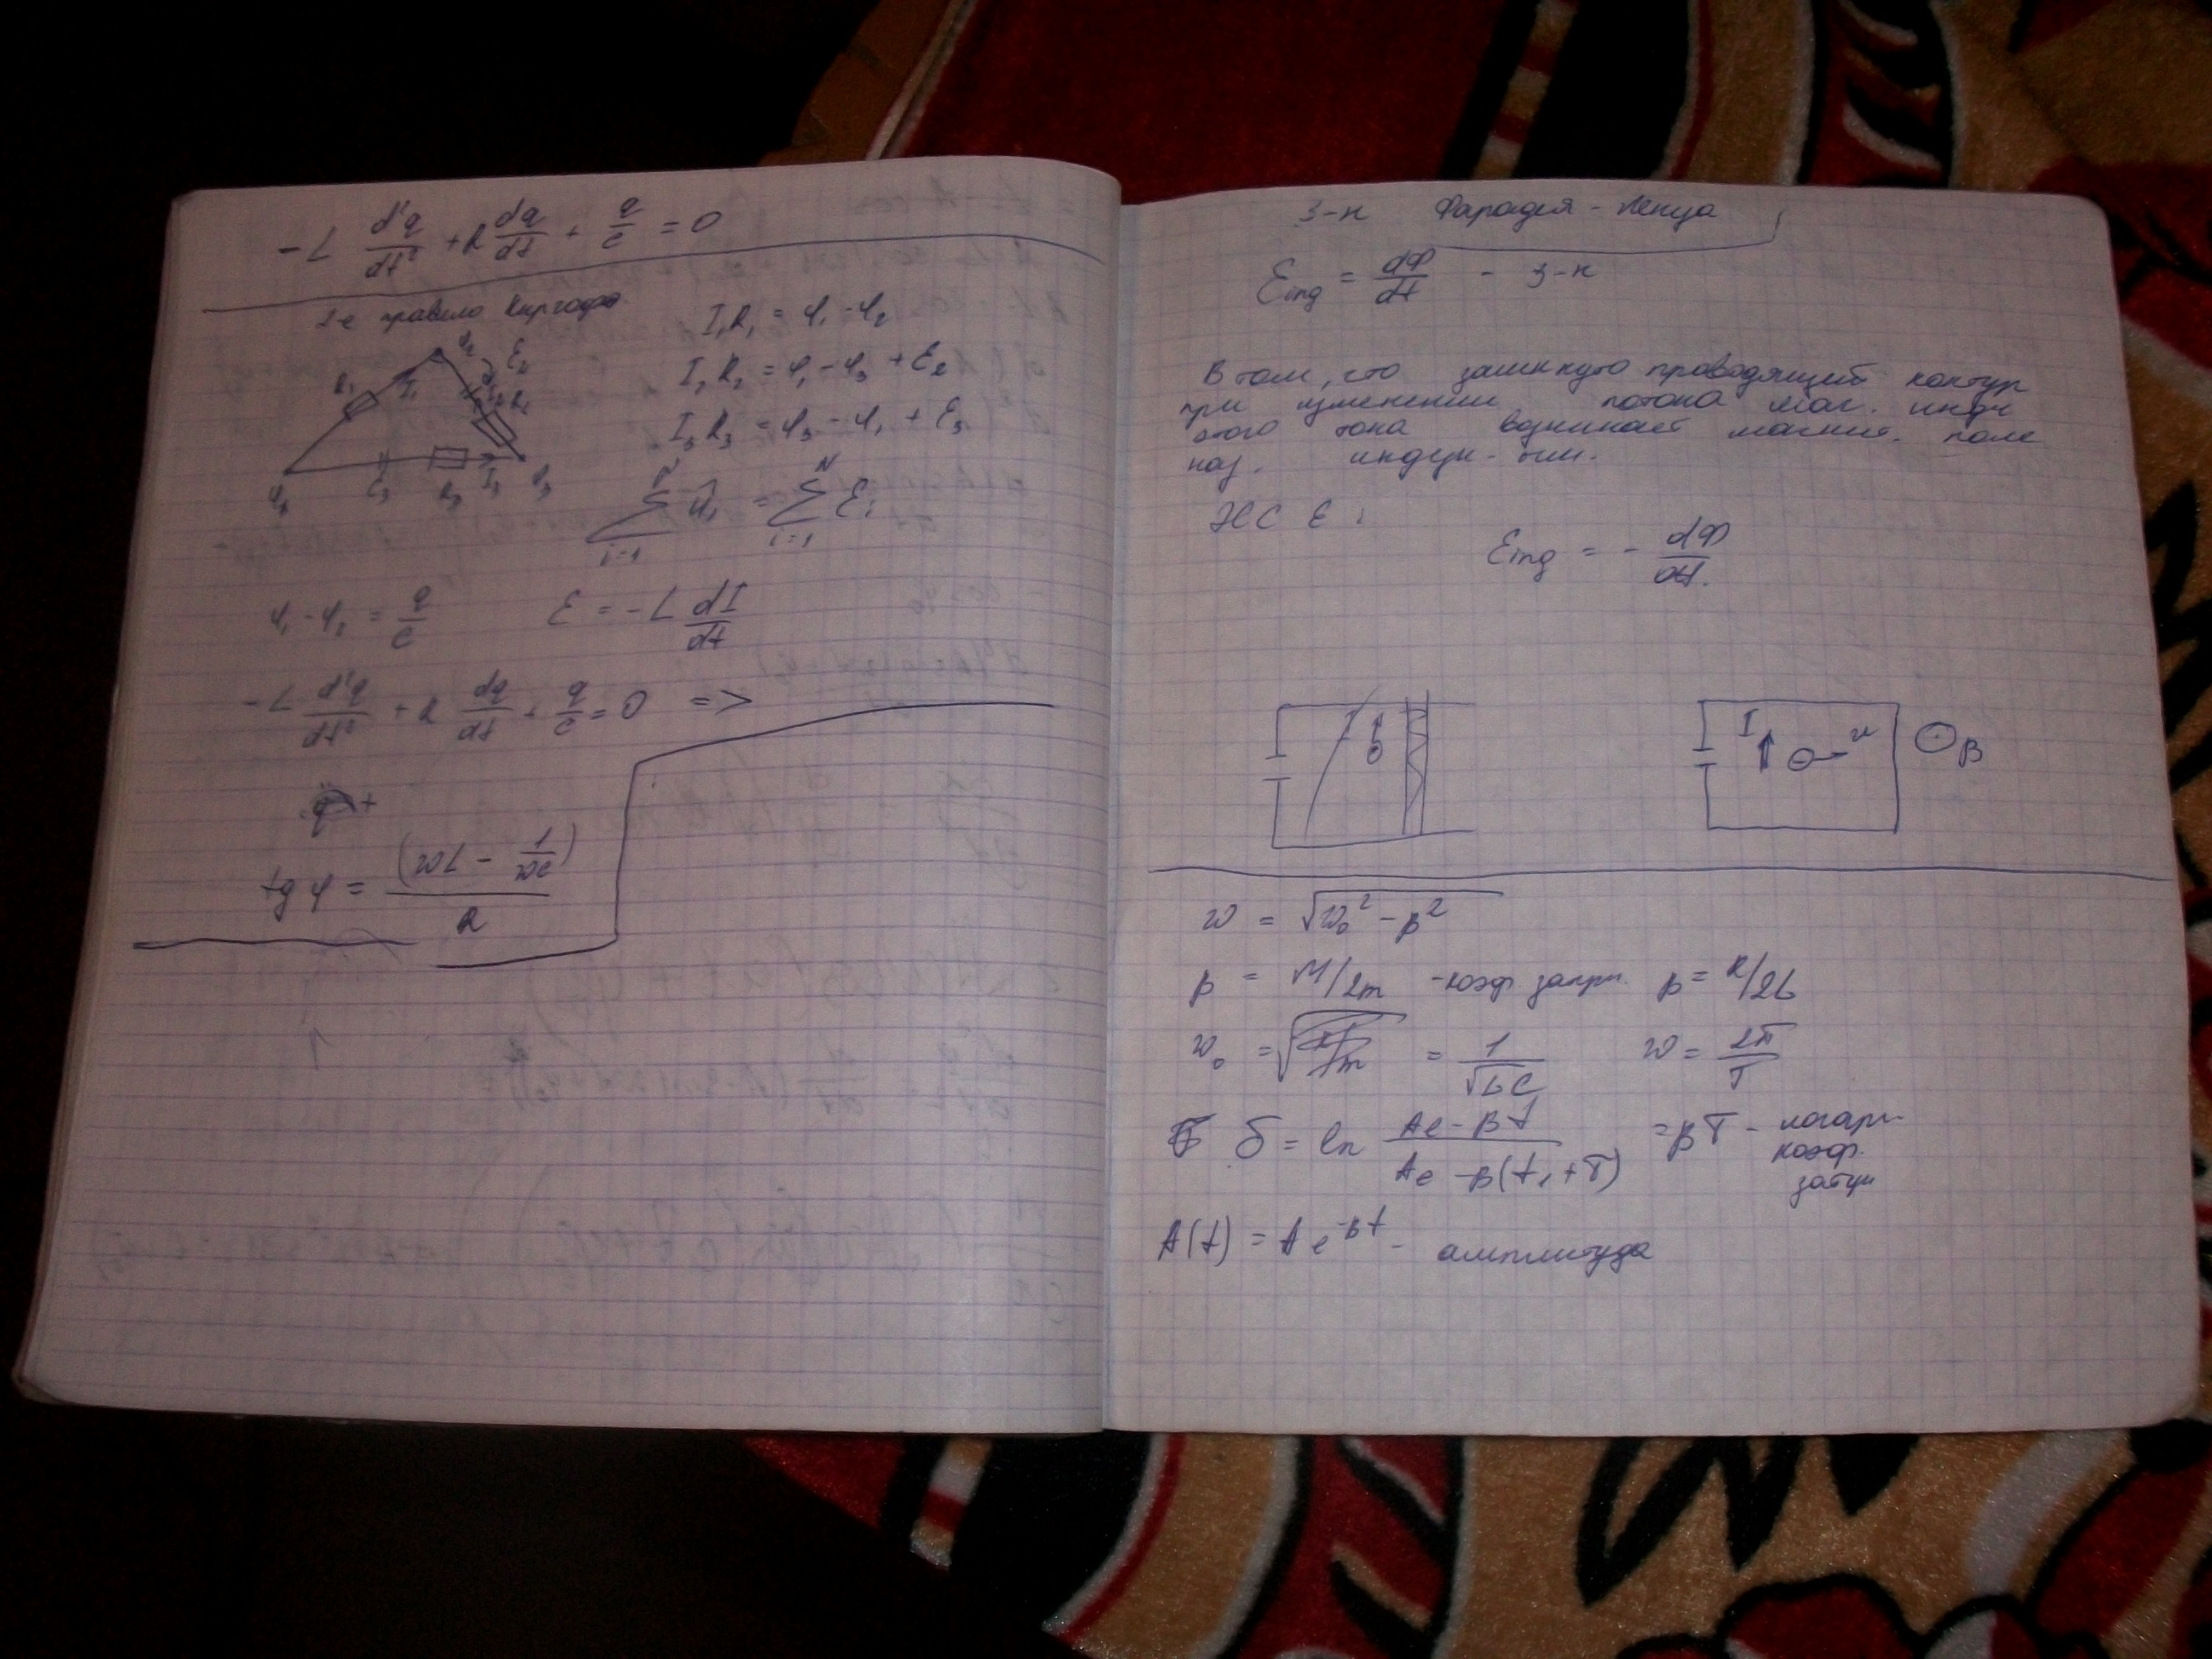 -L d²q/dt² + R dq/dt + q/c = 0
2-е правило Кирхгофа
I₁R₁ = φ₁ - φ₂
I₂R₂ = φ₁ - φ₃ + Ɛ₂
I₃R₃ = φ₃ - φ₁ + Ɛ₃
φ₂ Ɛ₂
R₁ I₁ R₂
φ₁ Ɛ₃ R₃ I₃ φ₃
∑ᵢ₌₁ᴺ Uᵢ = ∑ᵢ₌₁ᴺ Ɛᵢ
φ₁ - φ₂ = q/c Ɛ = -L dI/dt
-L d²q/dt² + R dq/dt + q/c = 0 =>
tg φ = (ωL - 1/ωc)/R
З-н Фарадея - Ленца
Ɛind = dФ/dt - З-н
В том, что замкнуто проводящий контур
при изменении потока маг. индук
этого тока возникает магнит. поле
наз. индук-
Ɛind = - dФ/dt.
I
I u B
ω = √ω₀² - β²
β = M/2m - коэф β = R/2L
ω₀ = = 1/√LC ω = 2π/T
δ = ln Ae-βt/Ae-β(t₁+T) = βT - логари-
коэф.
затух
A(t) = Ae^-βt - амплитуда